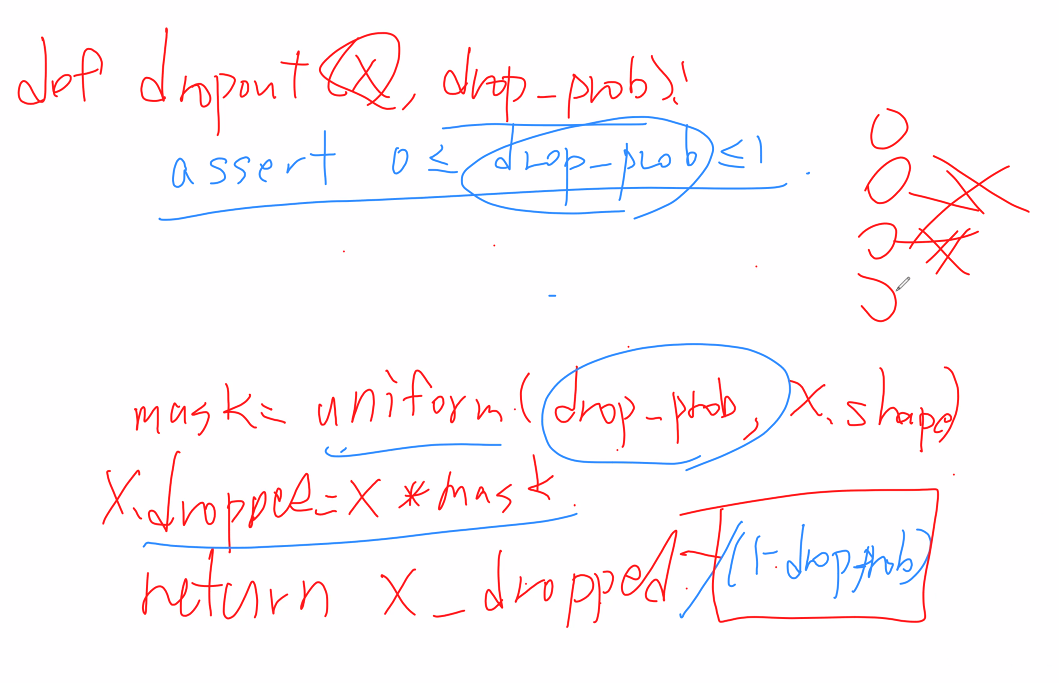 def dropout(X, drop_prob):
assert 0 ≤ drop_prob ≤ 1
mask = uniform(drop_prob, X.shape)
X.dropped = X * mask
return X_dropped / (1-drop_prob)